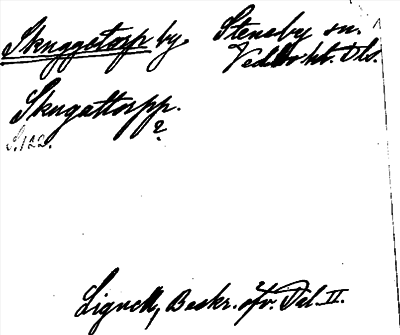 Skuggetorp by Steneby sn.
Vedbo hd. Dls.
Skugattorpp.
?
S. 122.
Lignell, Beskr. öfv. Dal. II.